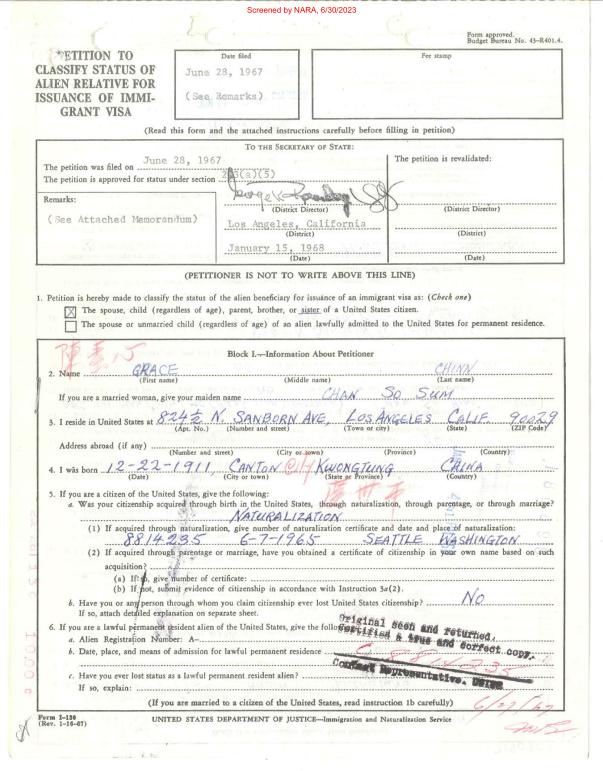 Screened by NARA, 6/30/2023
Form approved.
Budget Bureau No. 43-R401.4.
PETITION TO
CLASSIFY STATUS OF
ALIEN RELATIVE FOR
ISSUANCE OF IMMI-
GRANT VISA
Date filed
June 28, 1967
(See Remarks)
Fee stamp
(Read this form and the attached instructions carefully before filling in petition)
TO THE SECRETARY OF STATE:
The petition was filed on June 28, 1967
The petition is approved for status under section 203(a)(5)
Remarks:
(See Attached Memorandum)
(District Director)
Los Angeles, California
(District)
January 15, 1968
(Date)
The petition is revalidated:
(District Director)
(District)
(Date)
(PETITIONER IS NOT TO WRITE ABOVE THIS LINE)
1. Petition is hereby made to classify the status of the alien beneficiary for issuance of an immigrant visa as: (Check one)
X The spouse, child (regardless of age), parent, brother, or sister of a United States citizen.
The spouse or unmarried child (regardless of age) of an alien lawfully admitted to the United States for permanent residence.
Block I.—Information About Petitioner
2. Name GRACE CHINN
(First name) (Middle name) (Last name)
If you are a married woman, give your maiden name CHAN SO SUM
3. I reside in United States at 824½ N. SANBORN AVE, LOS ANGELES CALIF. 90029
(Apt. No.) (Number and street) (Town or city) (State) (ZIP Code)
Address abroad (if any)
(Number and street) (City or town) (Province) (Country)
4. I was born 12-22-1911, CANTON City KWONGTUNG CHINA
(Date) (City or town) (State or Province) (Country)
5. If you are a citizen of the United States, give the following:
a. Was your citizenship acquired through birth in the United States, through naturalization, through parentage, or through marriage?
NATURALIZATION
(1) If acquired through naturalization, give number of naturalization certificate and date and place of naturalization:
8814235 6-7-1965 SEATTLE WASHINGTON
(2) If acquired through parentage or marriage, have you obtained a certificate of citizenship in your own name based on such
acquisition?
(a) If so, give number of certificate:
(b) If not, submit evidence of citizenship in accordance with Instruction 3a(2).
b. Have you or any person through whom you claim citizenship ever lost United States citizenship? NO
If so, attach detailed explanation on separate sheet.
6. If you are a lawful permanent resident alien of the United States, give the
Original seen and returned.
Certified a true and correct copy.
a. Alien Registration Number: A-
b. Date, place, and means of admission for lawful permanent residence
C 8814235
Contact Representative.
c. Have you ever lost status as a lawful permanent resident alien?
If so, explain:
6/27/67
(If you are married to a citizen of the United States, read instruction 1b carefully)
Form I-130
(Rev. 1-16-67)
UNITED STATES DEPARTMENT OF JUSTICE—Immigration and Naturalization Service